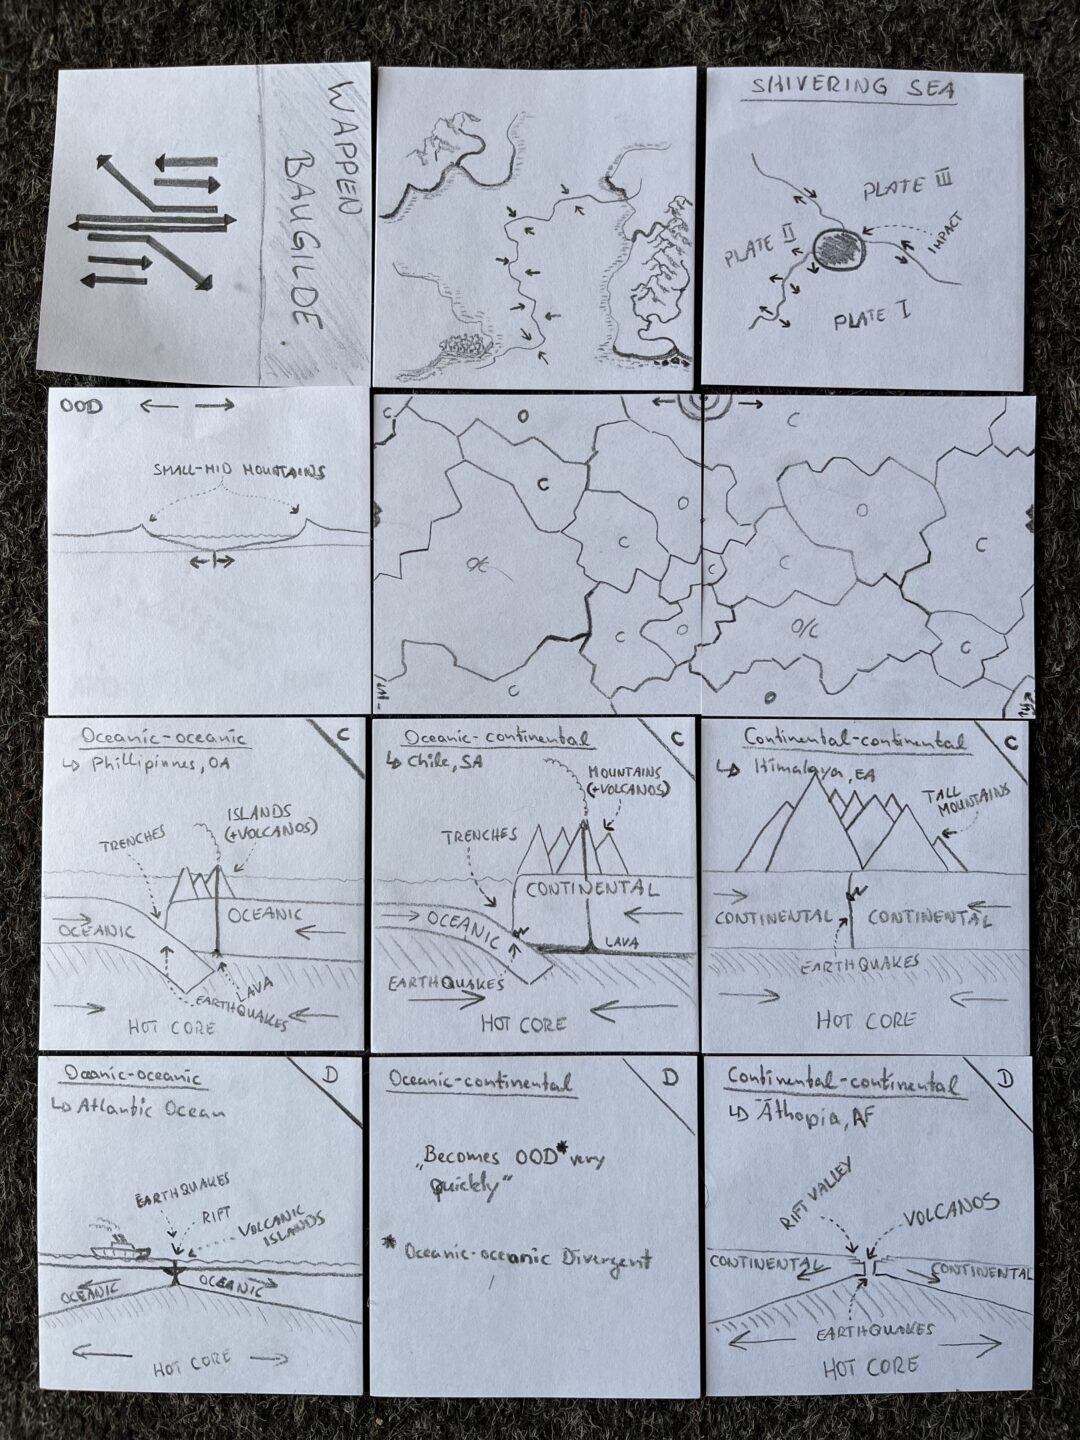 WAPPEN
BAUGILDE
SHIVERING SEA
PLATE III
PLATE II
IMPACT
PLATE I
OOD
SMALL-MID MOUNTAINS
C
O
C
O
C
O/C
C
O
C
C
C
O
C
C
O/C
C
O
Oceanic-oceanic
C
↳ Phillipinnes, OA
ISLANDS
(+VOLCANOS)
TRENCHES
OCEANIC
OCEANIC
LAVA
EARTHQUAKES
HOT CORE
Oceanic-continental
C
↳ Chile, SA
MOUNTAINS
(+VOLCANOS)
TRENCHES
CONTINENTAL
OCEANIC
LAVA
EARTHQUAKES
HOT CORE
Continental-continental
C
↳ Himalaya, EA
TALL
MOUNTAINS
CONTINENTAL
CONTINENTAL
EARTHQUAKES
HOT CORE
Oceanic-oceanic
D
↳ Atlantic Ocean
EARTHQUAKES
RIFT
VOLCANIC
ISLANDS
OCEANIC
OCEANIC
HOT CORE
Oceanic-continental
D
„Becomes OOD* very
quickly"
* Oceanic-oceanic Divergent
Continental-continental
D
↳ Äthopia, AF
RIFT VALLEY
VOLCANOS
CONTINENTAL
CONTINENTAL
EARTHQUAKES
HOT CORE